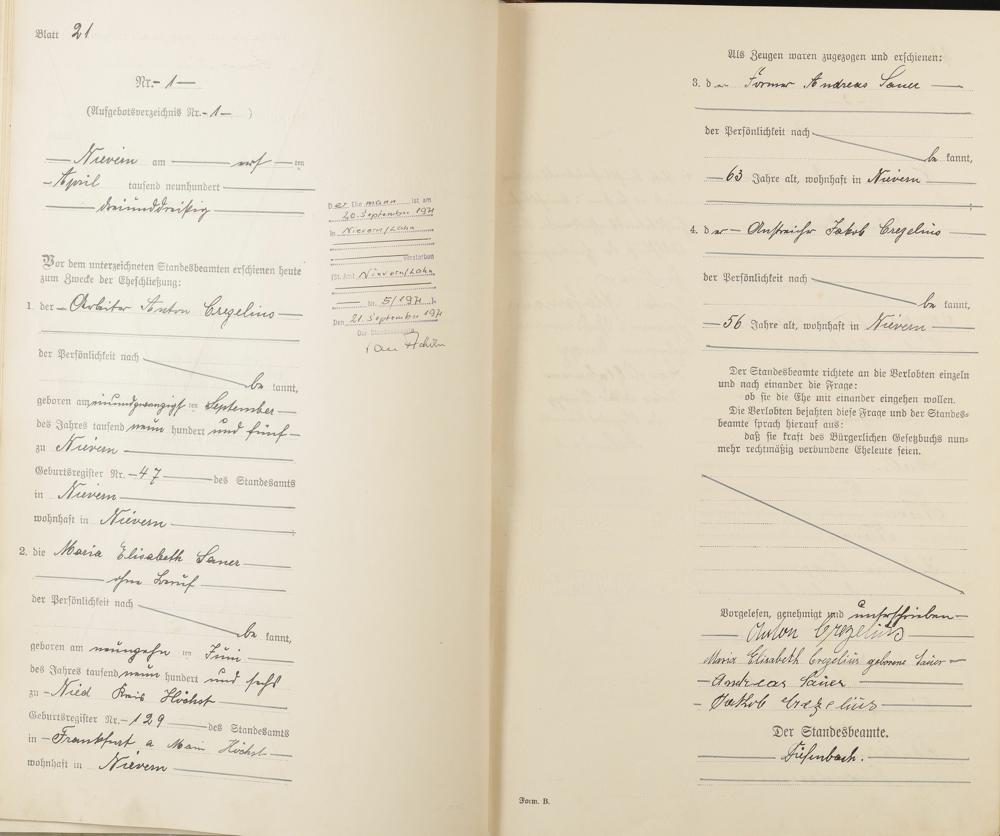 Blatt 21
Nr. 1
(Aufgebotsverzeichnis Nr. 1)
Nievern am ersten
April tausend neunhundert
dreiunddreißig
Vor dem unterzeichneten Standesbeamten erschienen heute
zum Zwecke der Eheschließung:
1. der Arbeiter Anton Crezelius
der Persönlichkeit nach
be kannt,
geboren am neunundzwanzigsten September
des Jahres tausend neun hundert und fünf
zu Nievern
Geburtsregister Nr. 47 des Standesamts
in Nievern
wohnhaft in Nievern
2. die Maria Elisabeth Sauer
ohne Beruf
der Persönlichkeit nach
be kannt,
geboren am neunzehnten Juni
des Jahres tausend neun hundert und sechs
zu Nied Kreis Höchst
Geburtsregister Nr. 129 des Standesamts
in Frankfurt a Main Höchst
wohnhaft in Nievern
Der Ehemann ist am
20. September 1971
in Nievern/Lahn
verstorben
(St.Amt Nievern/Lahn
Nr. 5/1971)
Den 21. September 1971
Der Standesbeamte
Als Zeugen waren zugezogen und erschienen:
3. der Former Andreas Sauer
der Persönlichkeit nach
be kannt,
63 Jahre alt, wohnhaft in Nievern
4. der Anstreicher Jakob Crezelius
der Persönlichkeit nach
be kannt,
56 Jahre alt, wohnhaft in Nievern
Der Standesbeamte richtete an die Verlobten einzeln
und nach einander die Frage:
ob sie die Ehe mit einander eingehen wollen.
Die Verlobten bejahten diese Frage und der Standes-
beamte sprach hierauf aus:
daß sie kraft des Bürgerlichen Gesetzbuchs nun-
mehr rechtmäßig verbundene Eheleute seien.
Vorgelesen, genehmigt und unterschrieben
Anton Crezelius
Maria Elisabeth Crezelius geborene Sauer
Andreas Sauer
Jakob Crezelius
Der Standesbeamte.
Diefenbach.
Form. B.